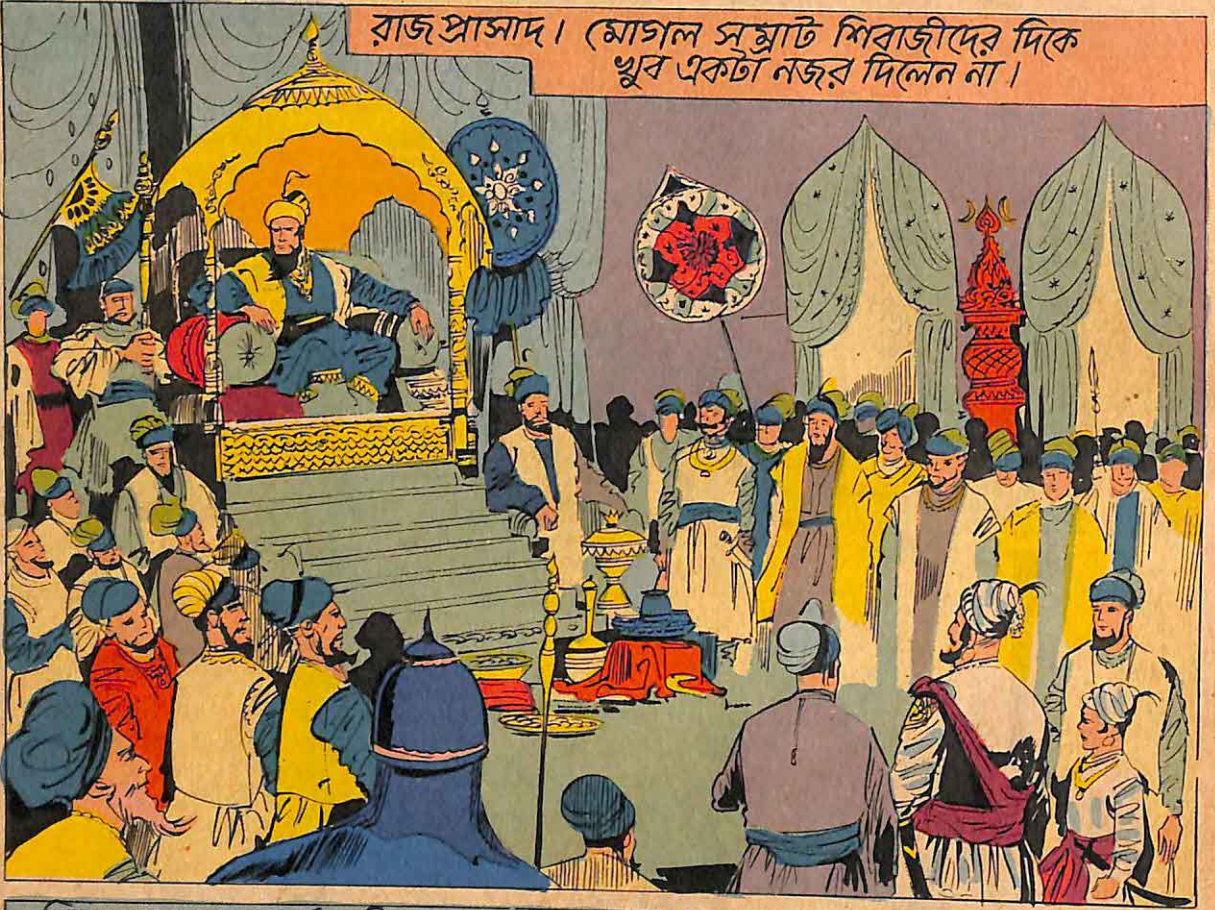 রাজপ্রাসাদ। মোগল সম্রাট শিবাজীদের দিকে
খুব একটা নজর দিলেন না।